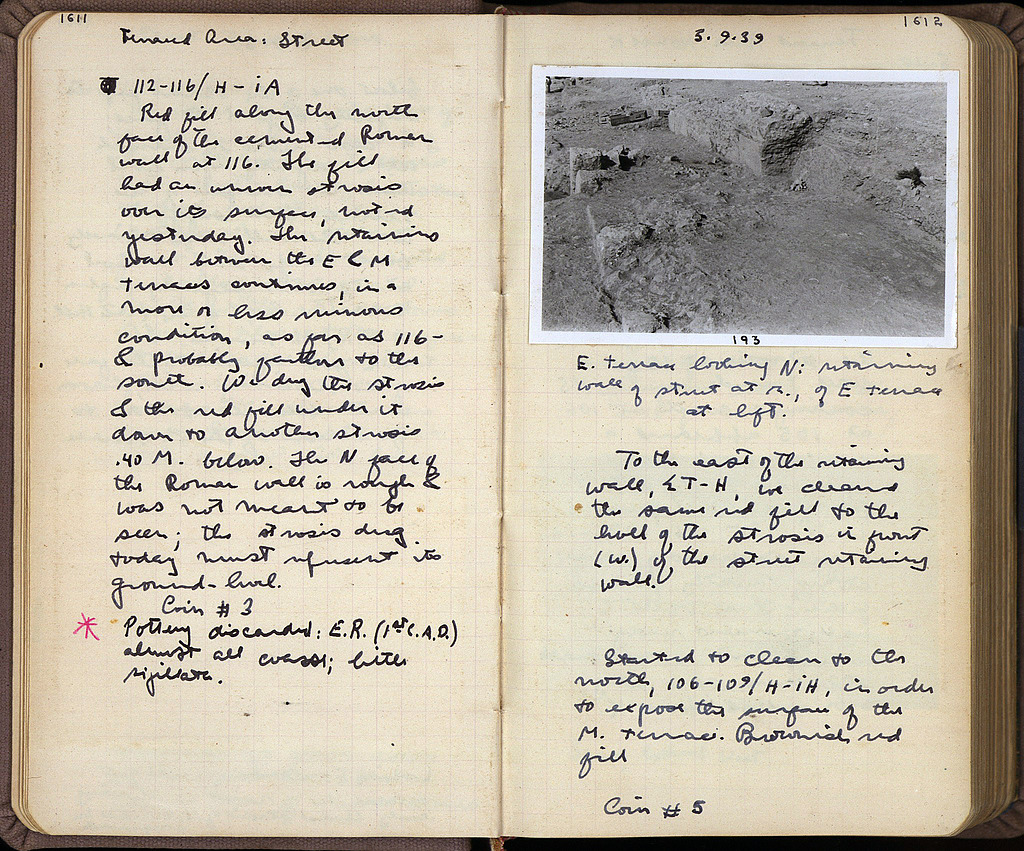 1611
Terraced Area: Street
112-116/H-iA
Red fill along the north
face of the cemented Roman
wall at 116. The fill
had an uneven strosis
over its surface, noted
yesterday. The retaining
wall between the E & M
Terraces continues, in a
more or less ruinous
condition, as far as 116-
& probably farther to the
south. We dug the strosis
& the red fill under it
down to another strosis
.40 M. below. The N face of
the Roman wall is rough &
was not meant to be
seen; the strosis dug
today must represent its
ground-level.
Coin # 3
* Pottery discarded: E.R. (1st C. A.D.)
almost all coarse; little
sigillata.
1612
3.9.39
193
E. Terrace looking N: retaining
wall of street at r., of E Terrace
at left.
To the east of the retaining
wall, ΣT-H, we cleared
the same red fill to the
level of the strosis in front
(W.) of the street retaining
wall.
Started to clean to the
north, 106-109/H-iH, in order
to expose the surface of the
M. Terrace. Brownish red
fill
Coin # 5